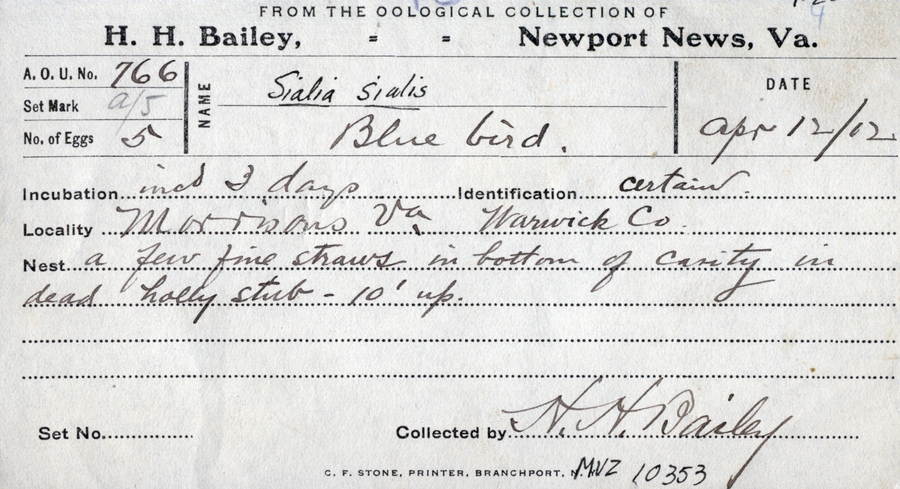 FROM THE OOLOGICAL COLLECTION OF
H. H. Bailey, = = Newport News, Va.
A. O. U. No. 766
Set Mark a/5
No. of Eggs 5
NAME
Sialia sialis
Blue bird.
DATE
Apr 12/12
Incubation incd 3 days Identification certain.
Locality Morrisons Va. Warwick Co.
Nest a few fine straws in bottom of cavity in
dead holly stub - 10' up.
Set No. Collected by H. H. Bailey
C. F. STONE, PRINTER, BRANCHPORT, N. MVZ 10353